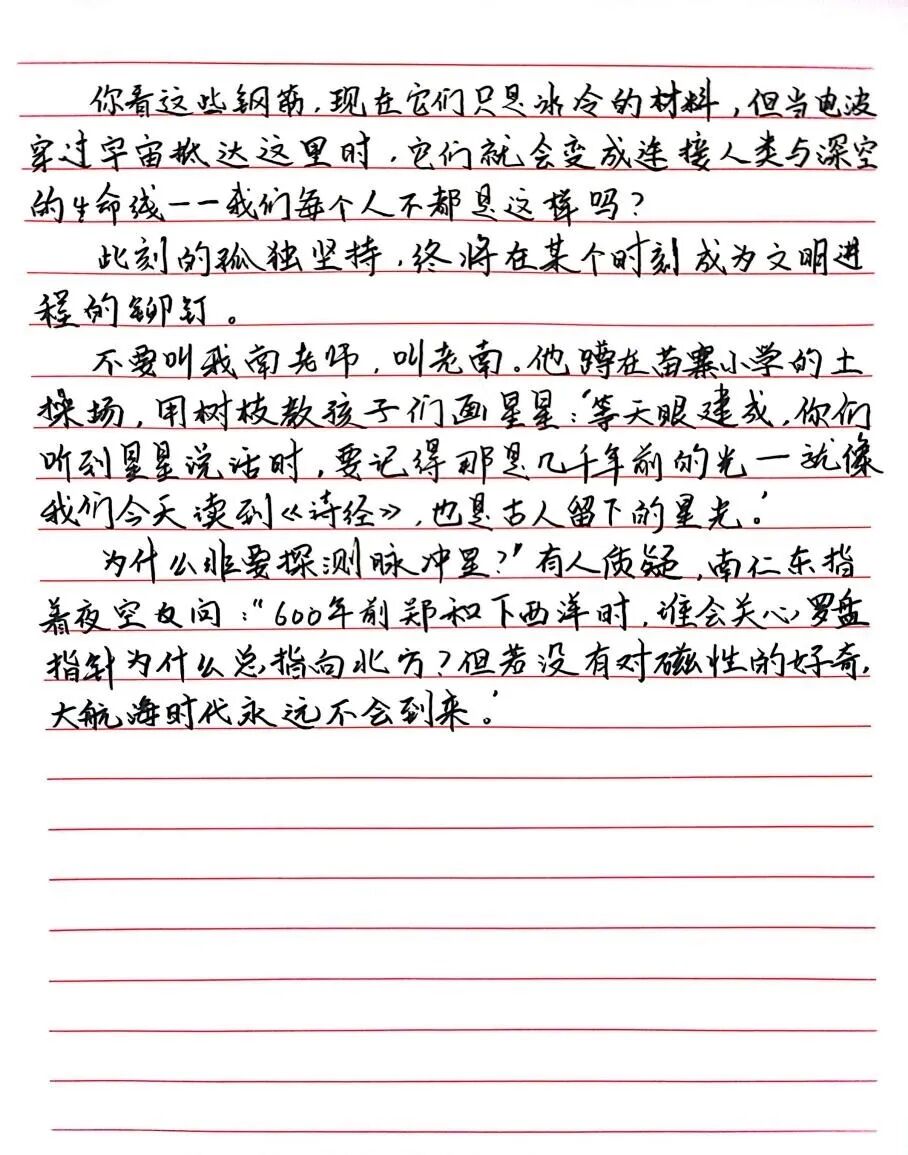 你看这些钢筋,现在它们只是冰冷的材料,但当电波
穿过宇宙抵达这里时,它们就会变成连接人类与深空
的生命线——我们每个人不都是这样吗?
此刻的孤独坚持,终将在某个时刻成为文明进
程的铆钉。
不要叫我南老师,叫老南。他蹲在苗寨小学的土
操场,用树枝教孩子们画星星:'等天眼建成,你们
听到星星说话时,要记得那是几千年前的光—就像
我们今天读到《诗经》,也是古人留下的星光.'
为什么非要探测脉冲星?'有人质疑,南仁东指
着夜空反问:"600年前郑和下西洋时,谁会关心罗盘
指针为什么总指向北方?但若没有对磁性的好奇,
大航海时代永远不会到来.'